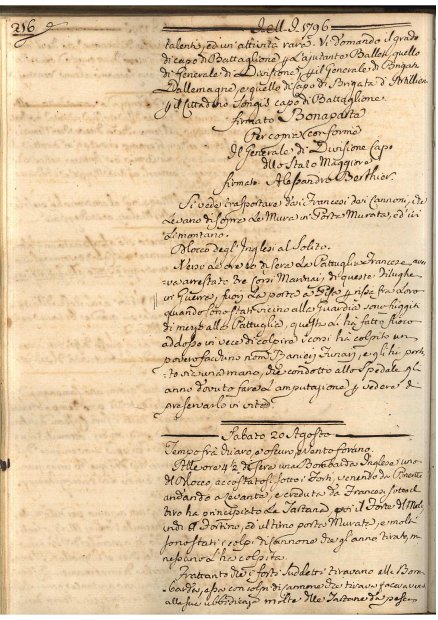 216
Dell A. 1796
talenti, ed un' attività rara. Vi domando il grado
di capo di Battaglione per l'ajutante Ballet, quello
di Generale di Divisione per il Generale di Brigata
Dallemagne, e quello di capo di Brigata d'Artiller.
per il Cittadino Songis capo di Battaglione
firmato Bonaparte
Per copia conforme
Il Generale di Divisione Capo
dello Stato Maggiore
firmato: Alessandro Berthier.
Si vede trasportare dai Francesi dei Cannoni, che
Levano di sopra Le Mura in Porta Murata, ed ivi
Blocco degl' Inglesi al Solito.
Verso le ore 10 di sera La Pattuglia Francese
arrestato tre Corsi Marinai, di queste
in Guerra, fuori La porta a
quando sono stati vicino alla Guardia sono fuggiti
di mezzo alla Pattuglia, questa li ha fatto fuoco
addosso in vece di colpire i corsi ha colpito un
povero facchino nom.
una mano, che condotto allo Spedale gli
anno dovuto fare L'amputazione per vedere di
preservarlo in vita
Sabato 20 Agosto
Tempo frà chiaro, e oscuro, e Vento forano.
Alle ore 4 1/2 di sera una Bombarda Inglese uno
del Blocco, accostatosi sotto i Forti, venendo da Ponente
andando a Levante, e creduta da Francesi sotto il
tiro ha principiato La Fortezza, poi il Forte del
il Fortino, ed ultimo porta Murata, e molti
sono stati i colpi di cannone che gli anno tirato,
nessuno L'ha colpita.
Frattanto che i forti suddetti tiravano alla Bom-
barda, essa con colpi di cannone
alla sua ubbidienza molte delle Tartane da pesca